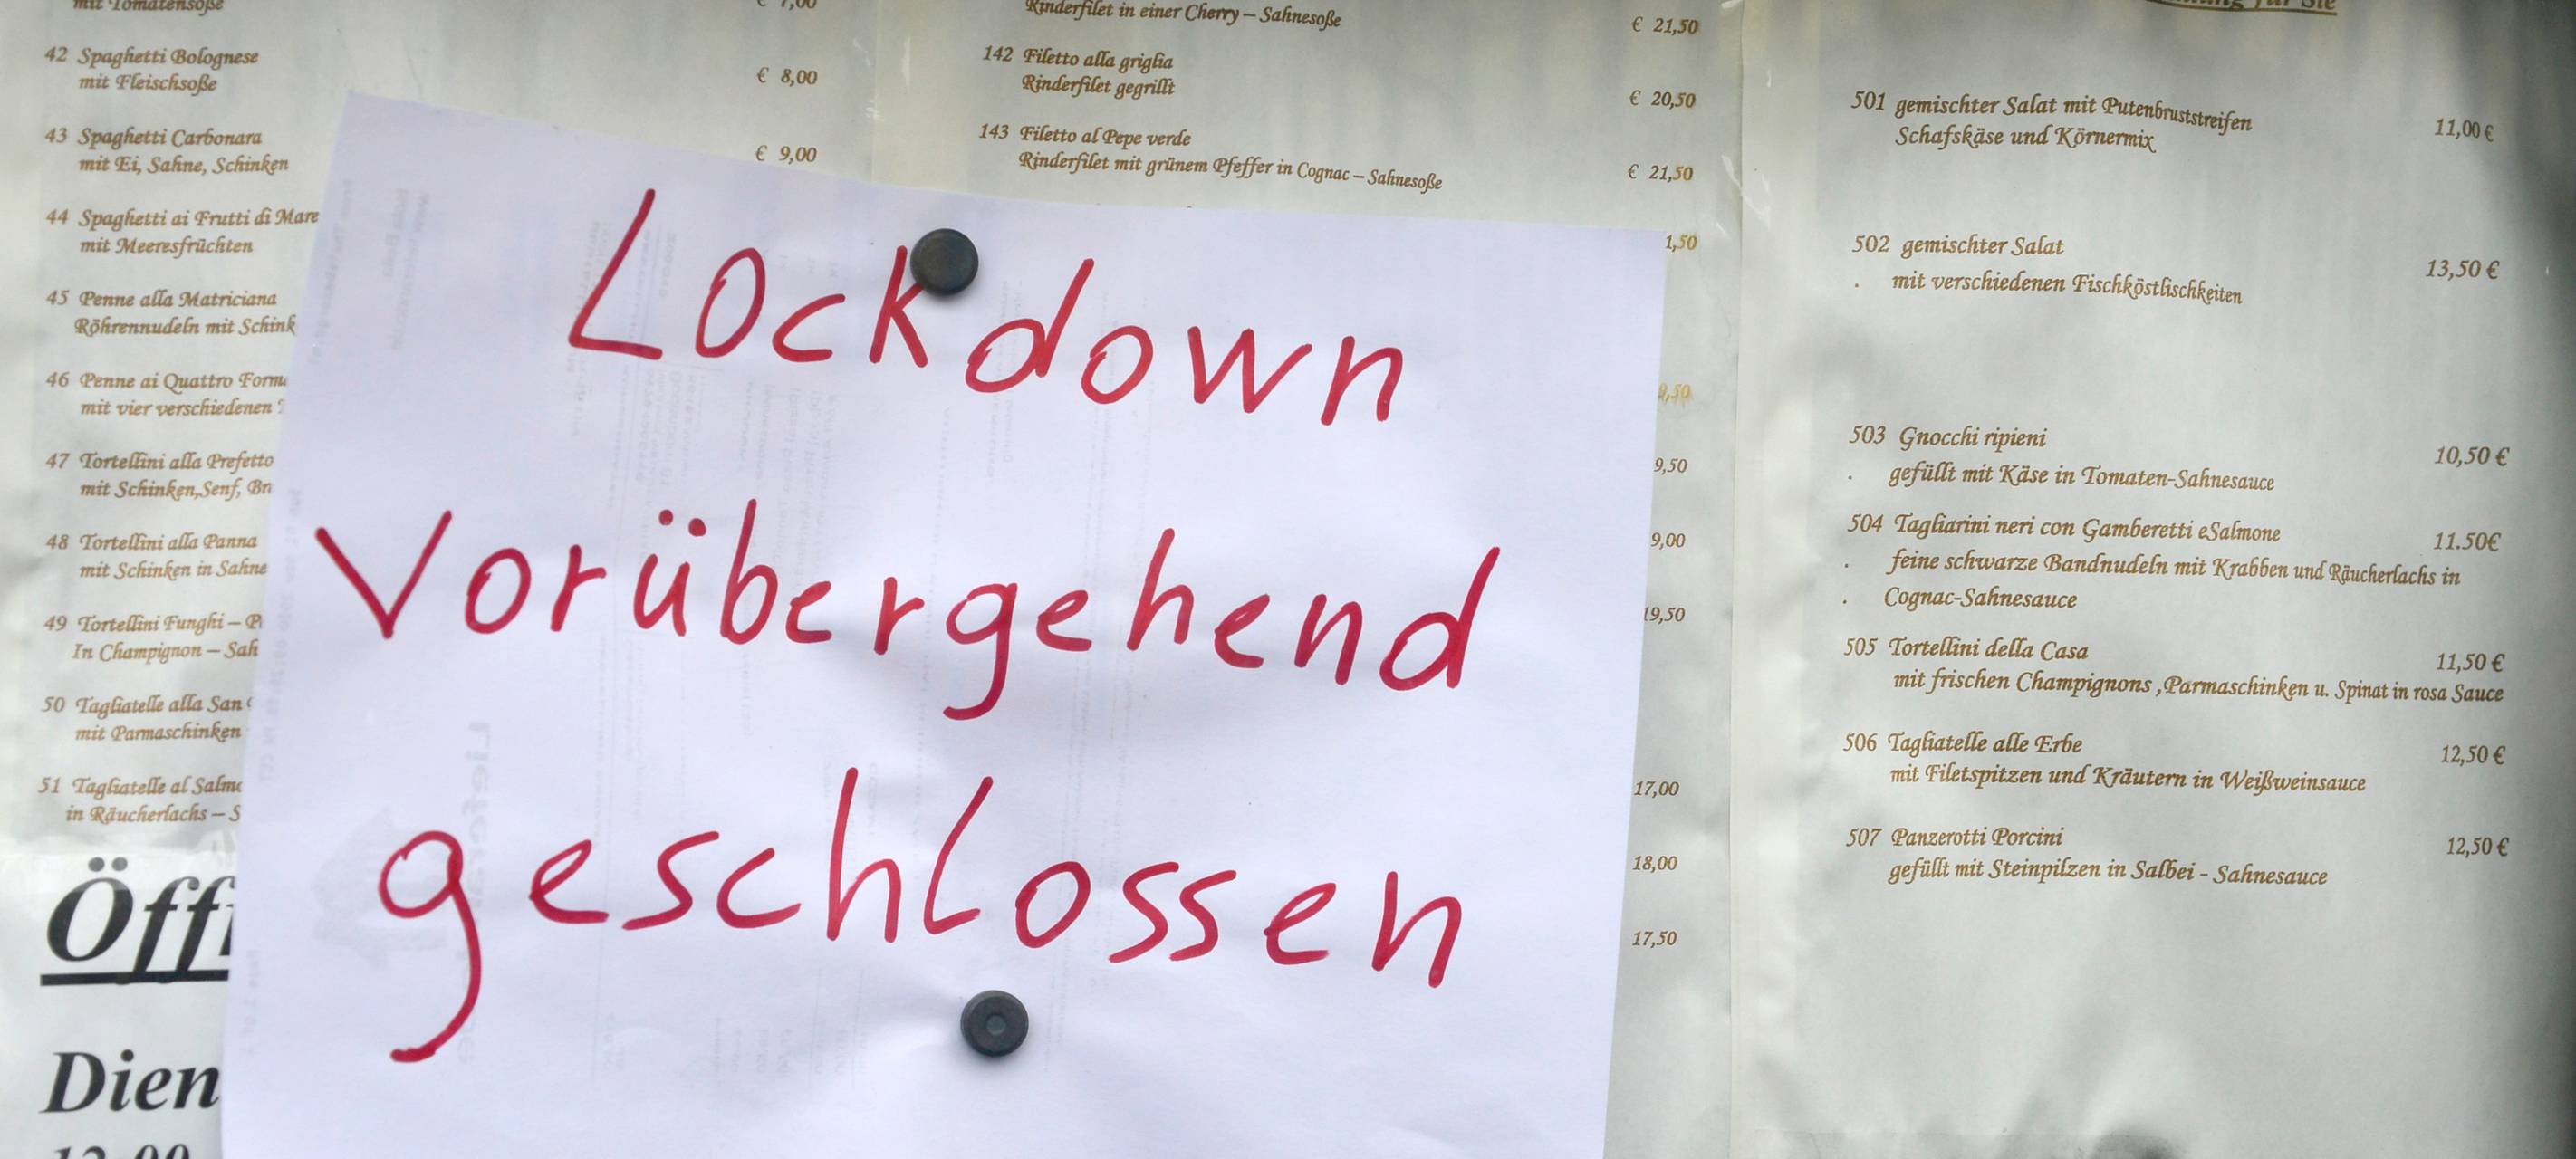 mit Tomatensoße
€ 7,00
42 Spaghetti Bolognese
mit Fleischsoße
€ 8,00
43 Spaghetti Carbonara
mit Ei, Sahne, Schinken
€ 9,00
44 Spaghetti ai Frutti di Mare
mit Meeresfrüchten
45 Penne alla Matriciana
Röhrennudeln mit Schink
46 Penne ai Quattro Form
mit vier verschiedenen
47 Tortellini alla Prefetto
mit Schinken,Senf, Br
48 Tortellini alla Panna
mit Schinken in Sahne
49 Tortellini Funghi – P
In Champignon – Sah
50 Tagliatelle alla San
mit Parmaschinken
51 Tagliatelle al Salm
in Räucherlachs – S
Öff
Dien
Lockdown
Vorübergehend
geschlossen
Rinderfilet in einer Cherry – Sahnesoße
€ 21,50
142 Filetto alla griglia
Rinderfilet gegrillt
€ 20,50
143 Filetto al Pepe verde
Rinderfilet mit grünem Pfeffer in Cognac – Sahnesoße
€ 21,50
1,50
9,50
9,50
9,00
19,50
17,00
18,00
17,50
für Sie
501 gemischter Salat mit Putenbruststreifen
Schafskäse und Körnermix
11,00 €
502 gemischter Salat
. mit verschiedenen Fischköstlischkeiten
13,50 €
503 Gnocchi ripieni
. gefüllt mit Käse in Tomaten-Sahnesauce
10,50 €
504 Tagliarini neri con Gamberetti eSalmone
11.50€
. feine schwarze Bandnudeln mit Krabben und Räucherlachs in
. Cognac-Sahnesauce
505 Tortellini della Casa
11,50 €
mit frischen Champignons ,Parmaschinken u. Spinat in rosa Sauce
506 Tagliatelle alle Erbe
12,50 €
mit Filetspitzen und Kräutern in Weißweinsauce
507 Panzerotti Porcini
12,50 €
gefüllt mit Steinpilzen in Salbei - Sahnesauce